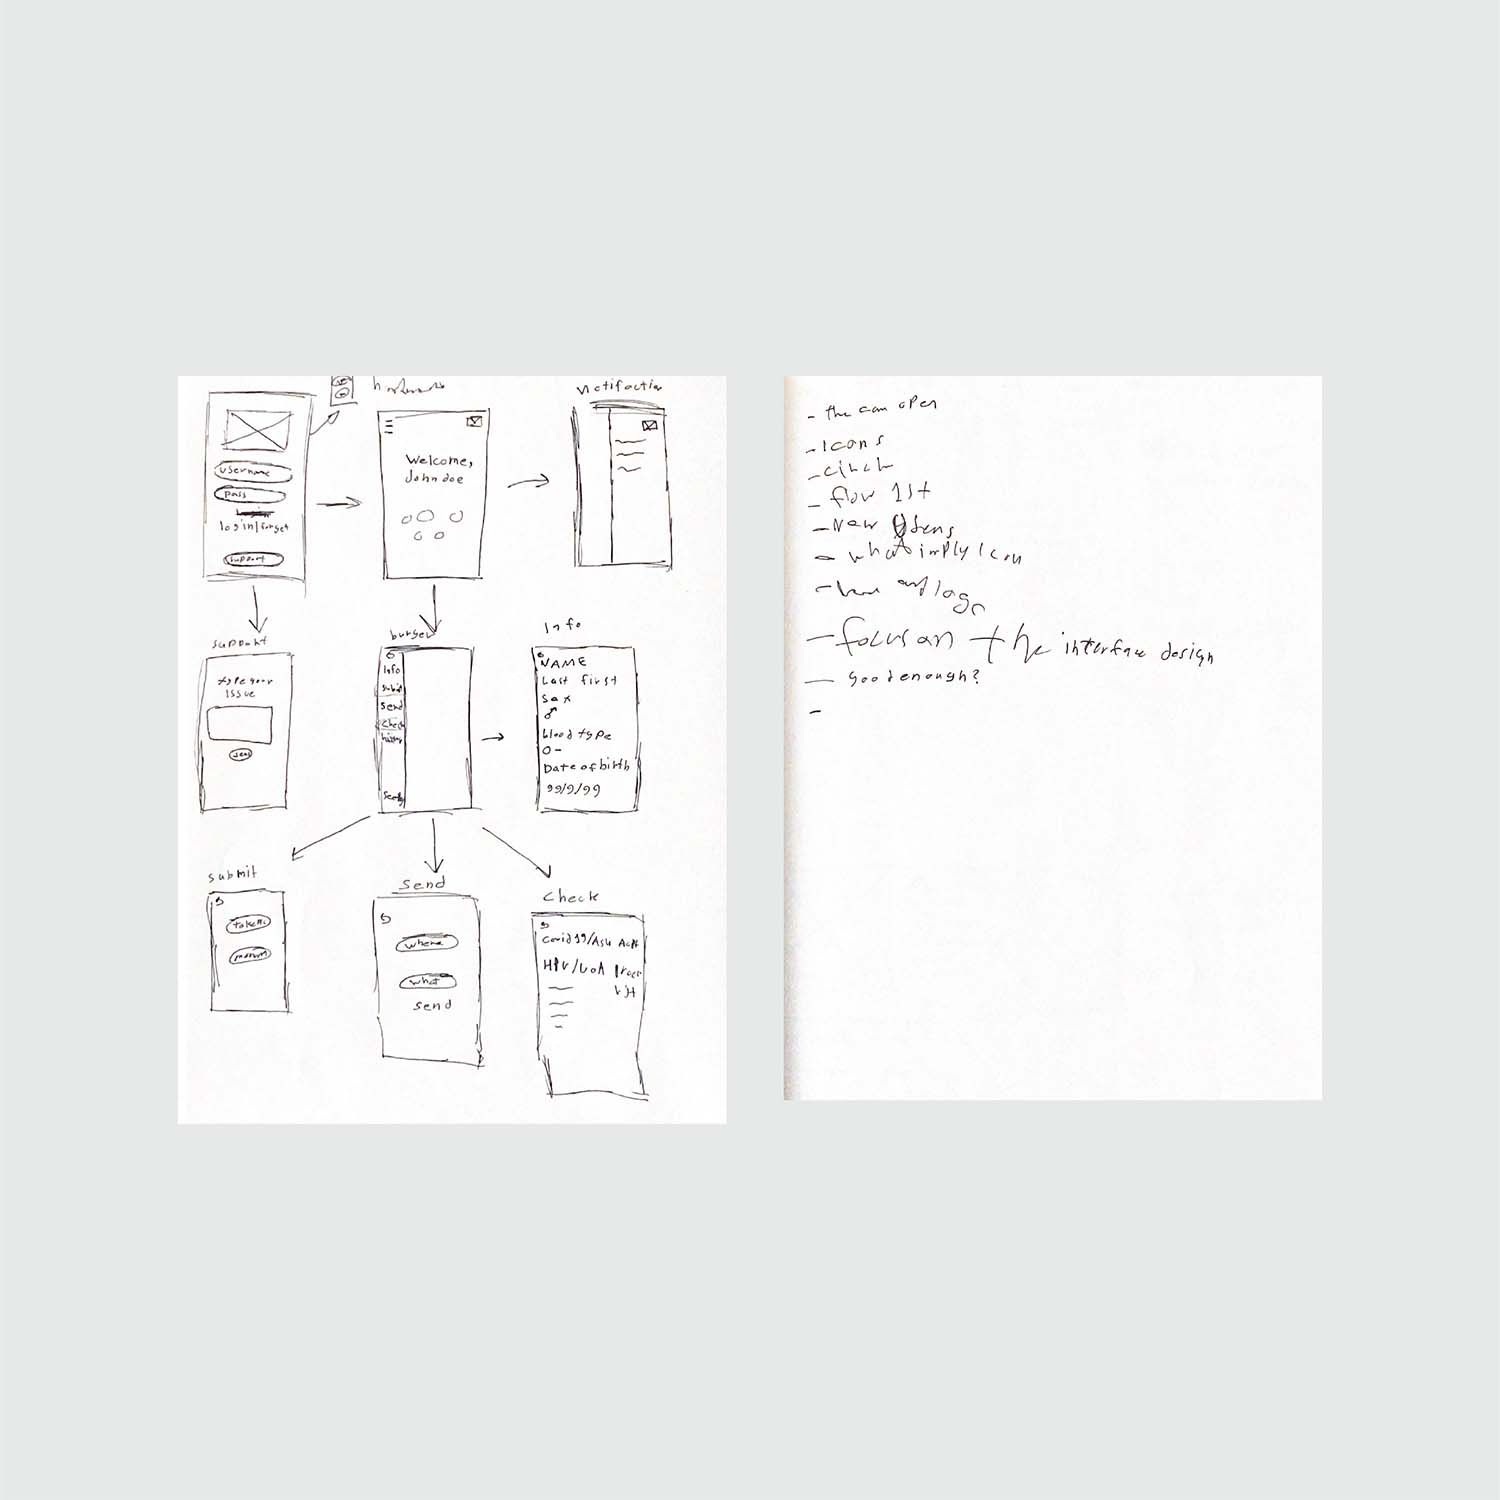 username
pass
login/forget
support
Welcome,
John doe
Notifactio
support
type your
issue
send
burger
info
submit
send
check
Info
NAME
Last first
Sex
♂
blood type
O-
Date of birth
99/9/99
submit
send
where
what
send
check
Covid 19/
HPV/
- the can open
- Icons
- flow 1st
- New
- what imply Icon
- and logo
- focus on the interface design
- good enough?
-